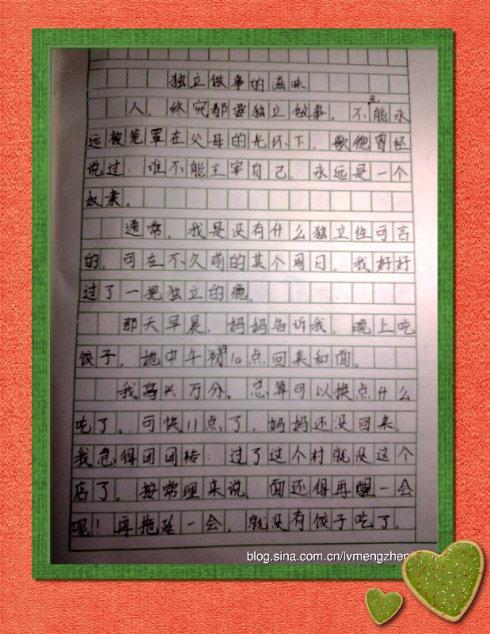 独立做事的滋味
人，终究都要独立做事，不能永
远被笼罩在父母的光环下，歌德曾经
说过：谁不能主宰自己，永远是一个
奴隶。
通常，我是没有什么独立性可言
的，可在不久前的某个周日，我好好
过了一把独立的瘾。
那天早晨，妈妈告诉我，晚上吃
饺子，她中午10点回来和面。
我高兴万分，总算可以换点什么
吃了。可快11点了，妈妈还没回来。
我急得团团转：过了这个村就没这个
店了，按常理来说，面还得再醒一会
呢！再拖延一会，就没有饺子吃了。
blog.sina.com.cn/lvmengzhe